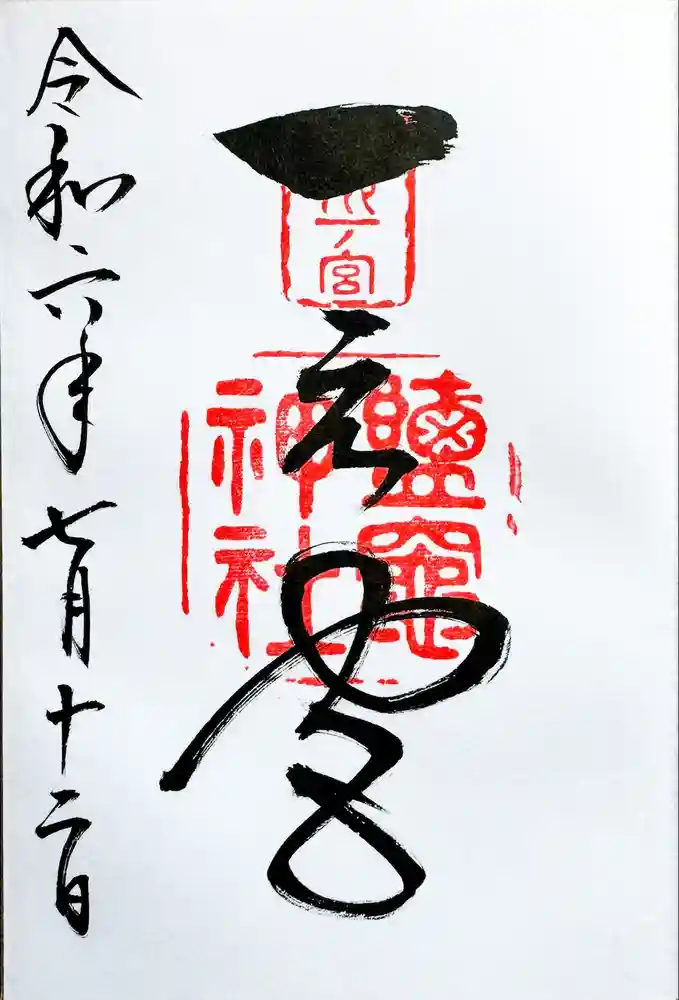 一之宮
鹽竈
神社
令和六年七月十二日